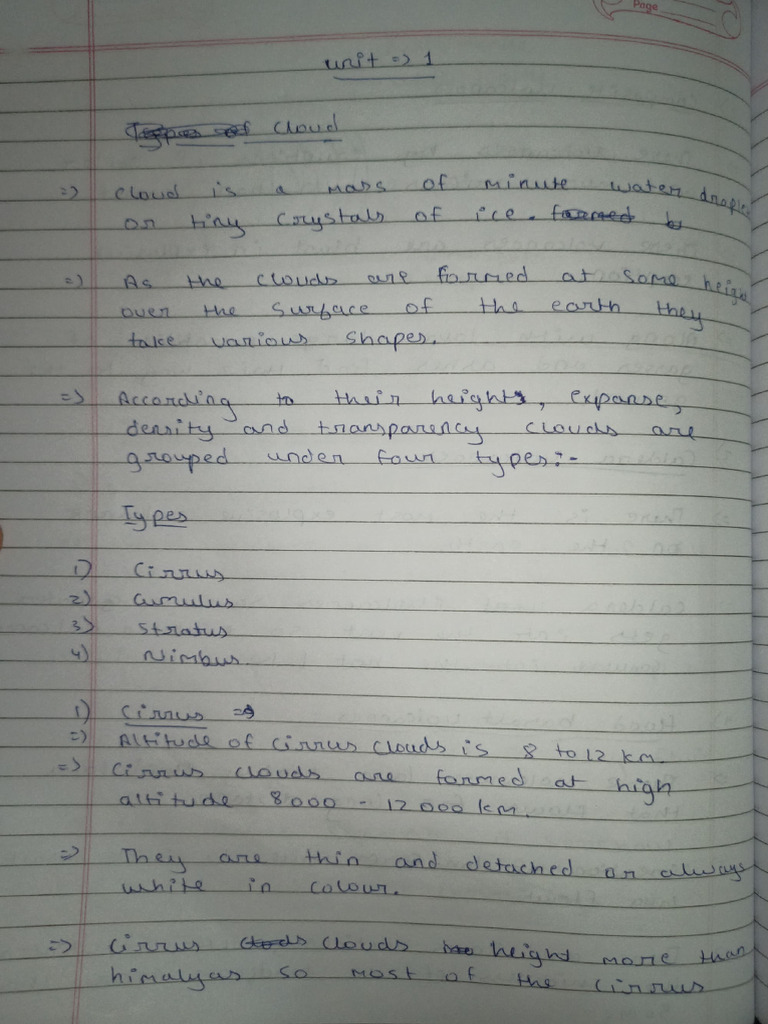 Page
unit => 1
Types of Cloud
=> Cloud is a mass of minute water
or tiny crystals of ice. formed
=> As the clouds are formed at some
over the surface of the earth they
take various shapes.
=> According to their heights, expanse,
density and transparency clouds are
grouped under four types:-
Types
1) Cirrus
2) cumulus
3) Stratus
4) Nimbus
1) Cirrus =>
=> Altitude of cirrus clouds is 8 to 12 km.
=> Cirrus clouds are formed at high
altitude 8000 - 12000 km.
=> They are thin and detached or always
white in colour.
=> Cirrus clouds clouds height more than
himalyas so most of the cirrus